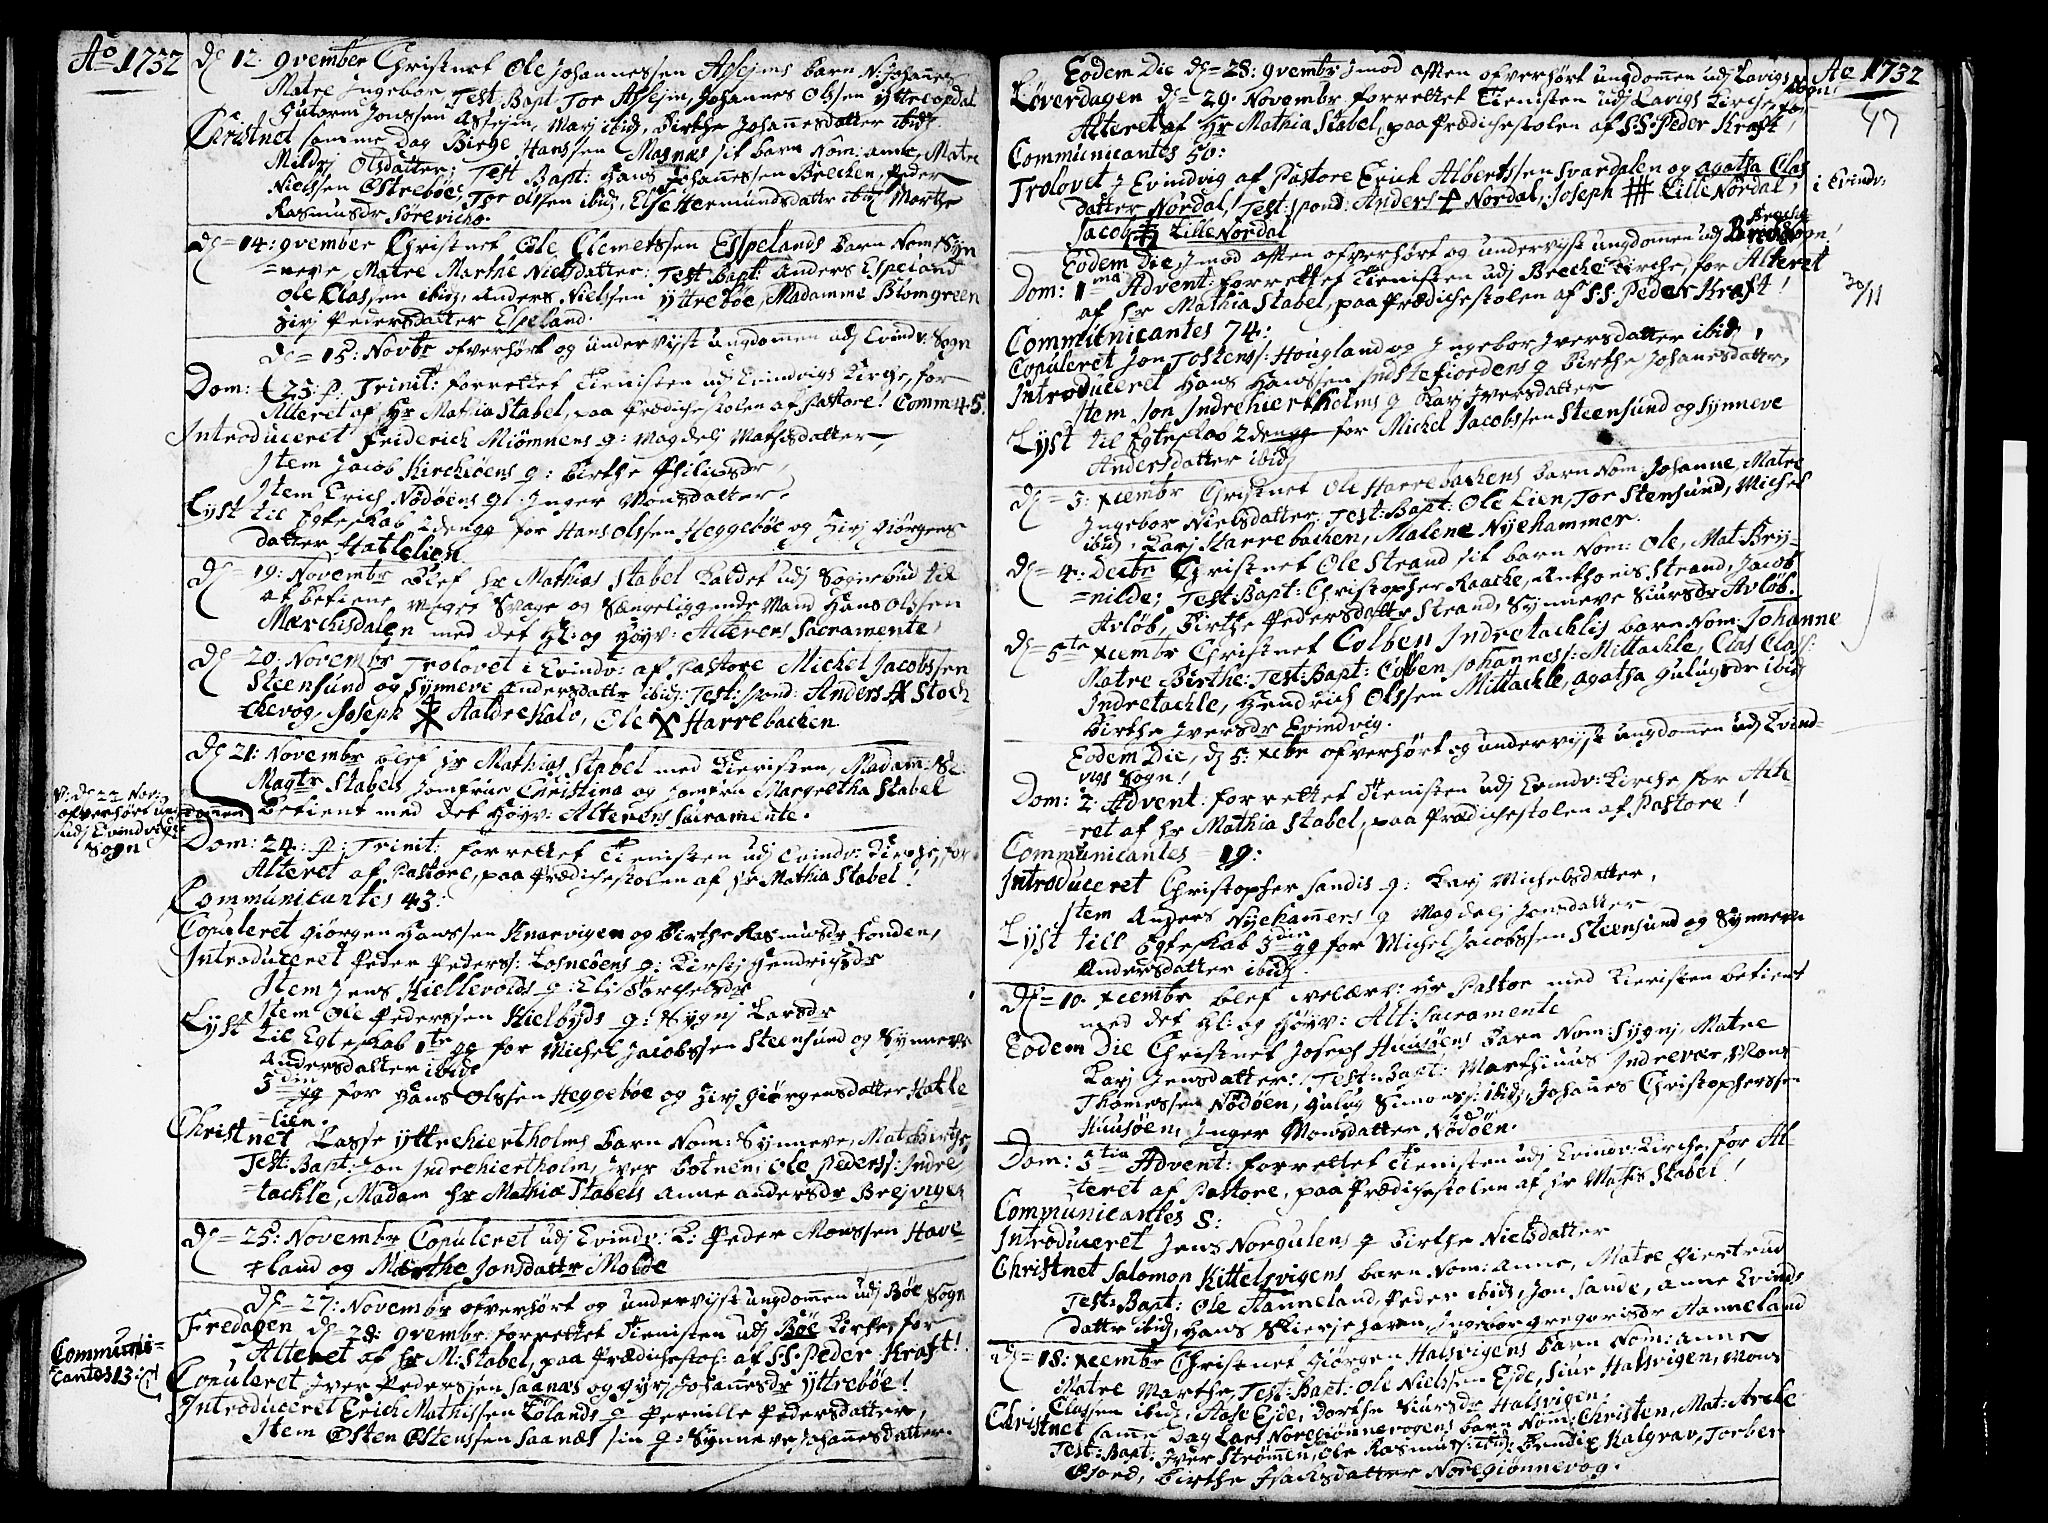 Ao 1732
d 12: 9vember Christnet Ole Johannessen Assejms barn N: Johannes
Matre Ingebor Test: Bapt Tor Assejm, Johannes Olssen Yttreopdal
Gutorm Jonssen Assejm, Marj ibid, Birthe Johannesdatter ibid
Christnet samme Dag Birge Hanssen Masnæs sit barn Nom: anne, Matre
Mildrj Olsdatter; Test: Bapt: Hans Johannessen Brecken, Peder
Nielssen Østrebøe, Tor olssen ibid, Else Hermundsdatter ibid Marthe
Rasmusdr Sørevicho.
d = 14: 9vember Christnet Ole Clemetssen Espelands barn Nom: Syn
=neve, Matre Marthe Nielsdatter: Test: bapt: Anders Espeland
Ole Classen ibid, anders Nielsen Yttrebøe, Madamme Blomgreen
Sirj Pedersdatter Espeland.
d = 15: Novbr ofverhørt og undervjst ungdommen udj Evindv: Sogn
Dom: 23: p. Trinit: forrettet Tienisten udj Evindvigs Kirche, for
Alteret af Hr Mathia Stabel, paa Prædichestolen af Pastore! Comm: 45.
Introduceret Friderich Miømnens q: Magdelj Mathisdatter,
Item Jacob Kirchiøens q: birthe Philipsdr,
Item Erich Nødøens q: Inger Monsdatter,
Lyst til Egteskab 2den gg for Hans Olssen Heggebøe og Sirj Giørgens
datter Hatlelien
d = 19: Novembr blef hr Mathias Stabel kaldet udj Sognebud til
at betiene meget Svage og Sængeliggende Mand Hans Olssen
Mærchisdalen med det Hl: og Høyv: Alterens Sacramente,
d = 20: Novembr Trolovet i Evindv: af Pastore Michel Jacobssen
Steensund og Synneve Andersdattr ibid: Test: spond: Anders Stoch
=chevog, Joseph Aaldrekalv, Ole Harrebachen.
d 21: Novembr blef hr Mathias Stabel med Kieristen, Madam: Sl:
Magtr Stabels Jomfrue Christina og Jomfru Margretha Stabel
betient med Det Høyv: Alterens Sacramente.
V: d 22 Nov:
ofverhørt ung
dommen
udj Evindvigs
Sogn
Dom: 24: p: Trinit: forrettet Tienisten udj Evindv: Kirche, for
Alteret af Pastore, paa Prædichestolen af hr Mathia Stabel!
Communicantes 43:
Copuleret Giørgen Hanssen Knarvigen og birthe Rasmusdr Sonden,
Introduceret Peder Peders: Losneøens q: Kirstj Hendrichsdr
Item Jens Kiellevolds q: Elj Torchelsdr
Item Ole Pederssen Kielbyds q: Sygnj Larsdr
Lyst til Egteskab 1te gg for Michel Jacobssen Steensund og Synneve
Andersdatter ibid
3din gg for Hans Olssen Heggebøe og Sirj Giørgensdatter Hatle
=lien.
Christnet Lasse Yttrehiertholms barn Nom: Synneve, Mat: birthe,
Test: Bapt: Jon Indrehiertholm, Iver botnen, Ole Peders: Indre
=tackle, Madam hr Mathiæ Stabels anne andersdr Brejvigen
d = 25: Novembr Copuleret udj Evindv: K: Peder Monssen Have
=land og Marthe Jonsdattr Molde
d = 27: Novembr ofverhørt og undervjst ungdommen udj Bøe Sogn
Fredagen d = 28: 9vembr forrettet Tienisten udj Bøe Kirche, for
Alteret af hr M: Stabel, paa Prædichestol: af S:S: Peder Kraft!
Communi=
cantes 13:
Copuleret Iver Pederssen Saanæs og gyrj Johannesdr Yttrebøe!
Introduceret Erich Mathissen Tølands q Pernille Pedersdatter,
Item Østen Østenssen Saanæs sin q: Synneve Johannesdatter.
Ao 1732
47
Eodem Die d = 28: 9vembr Imod aften ofverhørt ungdommen udj Lavigs Sogn!
Løverdagen d = 29. Novembr forrettet Tienisten udj Lavigs Kirche, for
Alteret af Hr Mathia Stabel, paa Prædichestolen af S:S: Peder Kraft,
Communicantes 50:
Trolovet J Evindvig af Pastore Erich Albertssen Svardalen og agatha Clas
i Evindv:
datter Nordal, Test: spond: Anders Nordal, Joseph Lille Nordal,
Jacob Lille Nordal
Eodem Die Imod aften ofverhørt og undervjst ungdommen udj Breche Sogn!
Dom: 1ma Advent: forrettet Tienisten udj Breche Kirche, for Alteret
30/11
af hr Mathia Stabel, paa Prædichestolen af S:S: Peder Kraft!
Communicantes 74:
Copuleret Jon Tostens: Hougland og Ingebor Iversdatter ibid,
Introduceret Hans Hanssen Indstefiordens q Birthe Johannesdatter,
Item Jon Indrehiertholms q Karj Iversdatter
Lyst til Egteskab 2den gg for Michel Jacobssen Steensund og Synneve
Andersdatter ibid
d = 3: Xcembr Christnet Ole Harrebachens barn Nom: Johanne, Matre
Ingebor Nielsdatter: Test: Bapt: Ole Lien, Tor Stensund, Michel
ibid, Karj Harrebachen, Malene Nyehammer.
d = 4: decbr Christnet Ole Strand sit barn Nom: Ole, Mat: Bry=
=nilde; Test: Bapt: Christopher Raache, Anthonis Strand, Jacob
Avløb, Birthe Pedersdattr Strand, Synneve Siursdr Avløb.
d = 5te Xcembr Christnet Colben Indretacklis barn Nom: Johanne
Matre Birthe: Test: Bapt: Colben Johanness: Mittackle, Clas Clas:
Indretackle, Hendrich Olssen Mittackle, agatha Gulugsdr ibid
Birthe Iversdr Evindvig.
Eodem Die, d 5: Xcbr ofverhørt og undervjst ungdommen udj Evind=
vigs Sogn!
Dom: 2: Advent: forrettet Tienisten udj Evindv: Kirche for Alte=
=ret af hr Mathia Stabel, paa Prædichestolen af Pastore!
Communicantes = 19:
Introduceret Christopher Sandis q: Karj Michelsdatter,
Item Anders Nyehammers q Magdelj Jonsdatter
Lyst till Egteskab 3din gg for Michel Jacobssen Steensund og Synneve
Andersdatter ibid.
d = 10. Xcembr blef velærv: Hr Pastor med Kieristen betient
med det Hl: og Høyv: Alt: Sacramente
Eodem Die Christnet Joseph Huusøens barn Nom: Sygnj, Matre
Karj Jensdatter: Test: Bapt: Marthinus Indrevær, Mons
Thomessen Nødøen, Gulug Simons: ibid, Johannes Christopherssen
Huusøen, Inger Monsdatter Nødøen.
Dom: 3tia Advent: forrettet Tienisten udj Evindv: Kirche, for Al=
=teret af Pastore, paa Prædichestolen af hr Mathis Stabel!
Communicantes 8:
Introduceret Jens Norgulens q Birthe Nielsdatter
Christnet Salomon Kittelsvigens barn Nom: anne, Matre Giertrud
Test: Bapt: Ole Hanneland, Peder ibid, Jon Sande, anne Evinds
datter ibid, Hans Skierjehavn, Ingebor gregorisdr Hanneland
d = 18: Xcembr Christnet Giørgen Halsvigens barn Nom: anne
Matre Marthe, Test: Bapt: Ole Nielssen Eide, Siur Halsvigen, Mons
Classen ibid, Aase Eide, Dorthe Siursdr Halsvigen.
Christnet samme Dag Lars Noregiønnevogens barn Nom: Christen, Mat: Arcke
Test: Bapt: Iver Strømmen, Ole Rasmus: ibid: Bendix Kalgrav, Torber
Øjord, Birthe Isachsdatter Noregiønnevog.